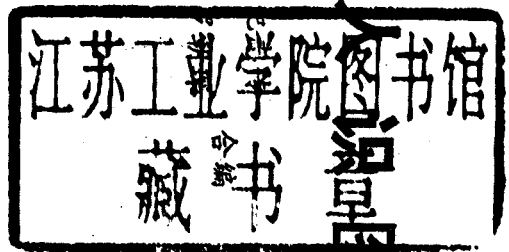 江苏工业学院图书馆
藏书
合编